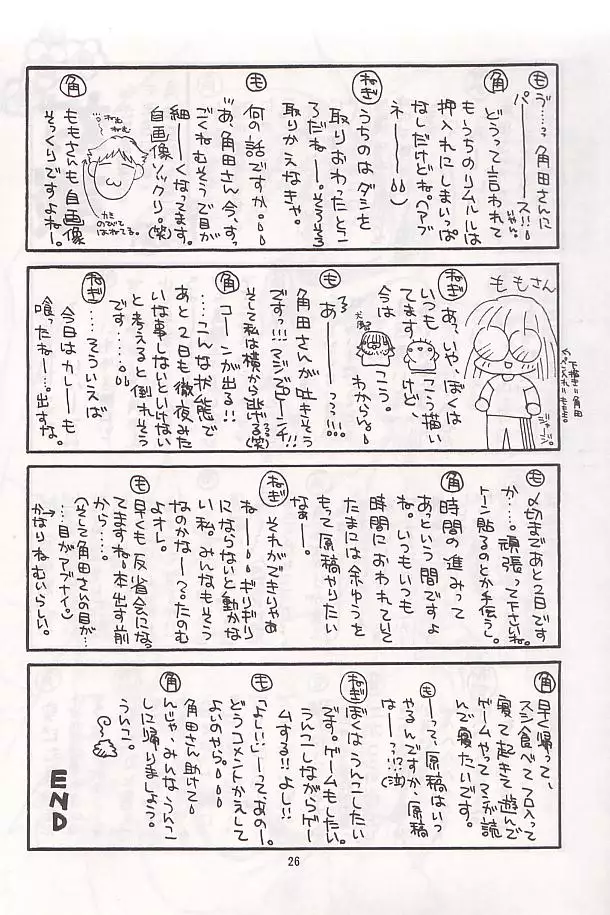 も
う゛…っ角田さんに
パーーース!!
角
どうって言われて
もうちのリムルルは
押入れにしまいっぱ
なしだけどね。ペアブ
ネーーー
ねぎ
うちのはダシを
取りおわったとこ
ろだねー。そろそろ
取りかえなきゃ。
も
何の話ですか。
あ、角田さん今、すっ
ごくねむそうで目が
細ーくなってます。
自画像ソックリ。(笑)
ねむ
ねむ
カミ
のびて
はねてる。
角
ももさんも自画像
そっくりですよねー。
ももさん
ジャージ。
下描き:角田
ペン入れ:もも。
ねぎ
あっいや、ぼくは
いつも
こう描い
てます
けど、
今は
こう。
わからん。
も
あーーっっ!!!
角田さんが吐きそう
ですっ!!!マジでピーンチ!!
そして私は横から逃げる(笑)
角
コーンが出る!!
…こんな状態で
あと2日も徹夜みた
いな事しないといけない
と考えると倒れそう
です……。
ねぎ
……そういえば
今日はカレーも
喰ったねー…。出すな。
も
〆切まであと2日です
か…。頑張って下さいね。
トーン貼るのとか手伝うし。
角
時間の進みって
あっという間ですよ
ね。いつもいつも
時間におわれていて
たまには余ゆうを
もって原稿やりたい
なぁー。
ねぎ
それができりゃあ
ねーーギリギリ
にならないと動かな
い私。みんなもそう
なのかなー?たのむ
よオレ。
も
早くも反省会になっ
てますね。本出す前
から……。
(そして角田さんの目が…
…目がアブナイ。)
かなりねむいらしい。
角
早く帰って、
スシ食べてフロ入って
寝て起きて遊んで
ゲームやってマンガ読
んで寝たいです。
も
ーって、原稿はいつ
やるんですか、原稿
はーっ!!?(泣)
ねぎ
ぼくはうんこしたい
です。ゲームもしたい。
うんこしながらゲー
ムする!!よし!!
も
「よし!!」ーっておのー。
どうコメントかえして
よいのやら。
角田さん助けてー
角
んじゃ、みんなうんこ
しに帰りましょう。
うんこ。
END
26